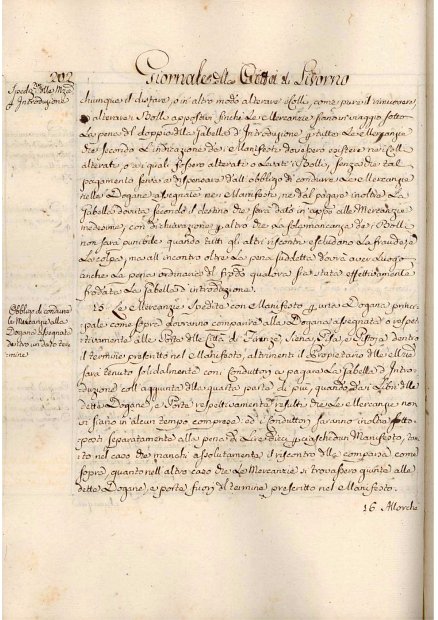 202
Giornale della Città di Livorno
Spediz.ne delle Merci
p Introduzione
chiunque il disfare, o in altro modo alterare i Colli, come pure il rimuovere,
o alterare i Bolli appostivi finche le Mercanzie siano in viaggio sotto
la pena del doppio della Gabella d'Introduzione p tutte le Mercanzie
che secondo l'indicazione de i Manifesti dovessero esistere nei Colli
alterati, o ai quali fossero alterati o levati i Bolli, senza che tal
pagamento serva a dispensare dall'obbligo di condurre le Mercanzie
nelle Dogane assegnate nei Manifesti, ne dal pagare inoltre la
Gabella dovuta secondo il destino che sarà dato in appo alle Mercanzie
medesime, con dichiarazione p altro che la sola mancanza dei Bolli
non sarà punibile quando tutti gli altri riscontri escludono la fraude, e
la colpa, ma all'incontro oltre la pena suddetta dovrà aver luogo
anche la pena ordinaria del frodo qualora sia stata effettivamente
frodata la Gabella d'introduzione.
Obbligo di condurre
le Mercanzie alla
Dogana assegnata
dentro un dato ter-
mine
15. Le Mercanzie Spedite con Manifesto p una Dogana princi-
pale come sopra dovranno comparire alla Dogana assegnata o respet-
tivamente alle Porte delle Città di Firenze, Siena, Pisa, e Pistoia dentro
il termine prescritto nel Manifesto, altrimenti il Proprietario delle Merci
sarà tenuto solidalmente con i Conduttori a pagare la Gabella d'Intro-
duzione coll'aggiunta della quarta parte di più, quando dai Libri delle
dette Dogane, e Porte respettivamente resulti che le Mercanzie non
vi siano in alcun tempo comparse, ed i Conduttori saranno inoltre sotto-
posti separatamente alla pena di Lire Dieci p ciaschedun Manifesto, tan-
to nel caso che manchi assolutamente il riscontro della comparsa come
sopra, quanto nell'altro caso che le Mercanzie si trovassero giunte alle
dette Dogane, e porte fuori del termine prescritto nel Manifesto.
16 Allorche